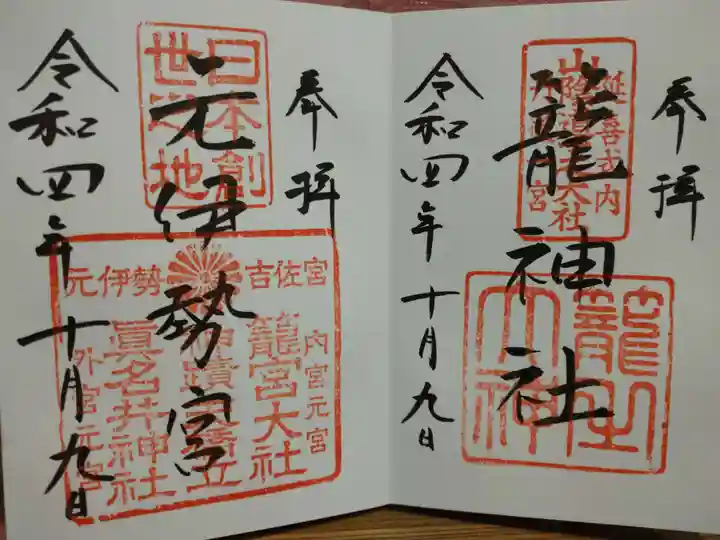 奉拝
延喜式内
山陰道一大社
籠神社
籠之大神
令和四年十月九日
奉拝
日本創
世之地
元伊勢宮
元伊勢 吉佐宮
内宮元宮
籠宮大社
眞名井神社
外宮元宮
令和四年十月九日